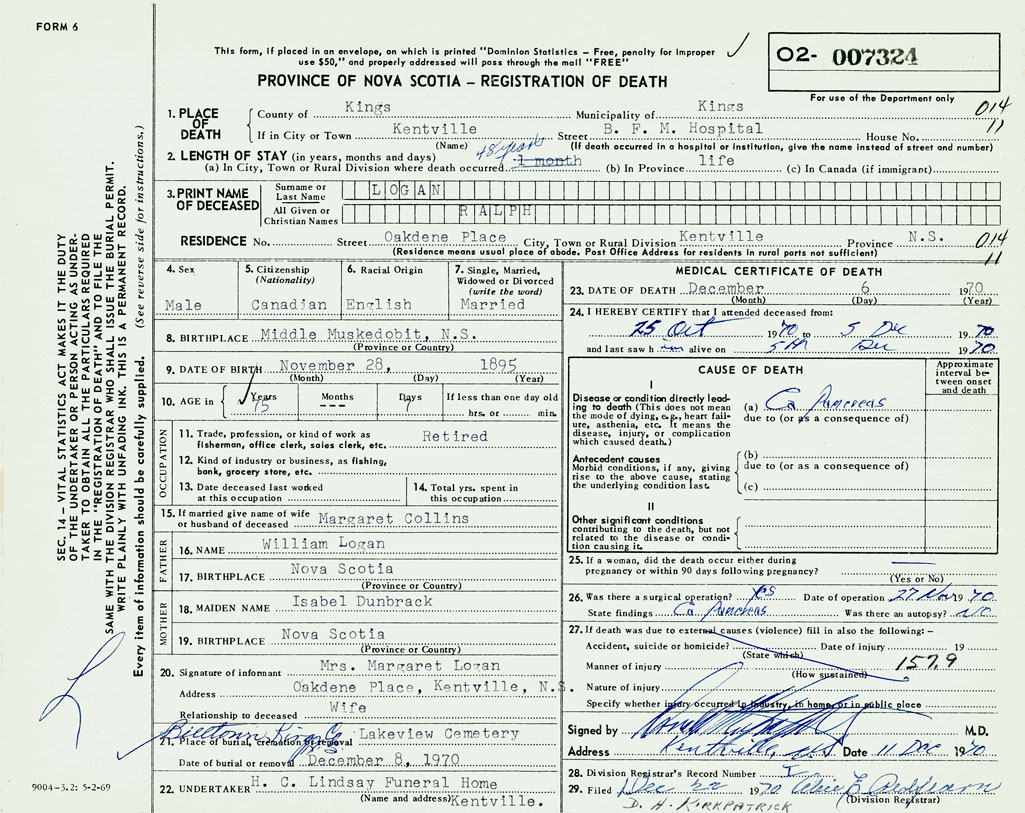 FORM 6
This form, if placed in an envelope, on which is printed "Dominion Statistics – Free, penalty for improper
use $50," and properly addressed will pass through the mail "FREE"
PROVINCE OF NOVA SCOTIA – REGISTRATION OF DEATH
02- 007324
For use of the Department only
014
11
SEC. 14 – VITAL STATISTICS ACT MAKES IT THE DUTY
OF THE UNDERTAKER OR PERSON ACTING AS UNDER-
TAKER TO OBTAIN ALL THE PARTICULARS REQUIRED
IN THE "REGISTRATION OF DEATH" AND TO FILE THE
SAME WITH THE DIVISION REGISTRAR WHO SHALL ISSUE THE BURIAL PERMIT.
WRITE PLAINLY WITH UNFADING INK. THIS IS A PERMANENT RECORD.
Every item of information should be carefully supplied. (See reverse side for instructions.)
1. PLACE OF DEATH
County of Kings Municipality of Kings
If in City or Town Kentville Street B. F. M. Hospital House No.
(Name) (If death occurred in a hospital or institution, give the name instead of street and number)
2. LENGTH OF STAY (in years, months and days)
(a) In City, Town or Rural Division where death occurred 1 month 48 years (b) In Province life (c) In Canada (if immigrant)
3. PRINT NAME OF DECEASED
Surname or Last Name LOGAN
All Given or Christian Names RALPH
RESIDENCE No. Street Oakdene Place City, Town or Rural Division Kentville Province N.S. 014
(Residence means usual place of abode. Post Office Address for residents in rural parts not sufficient) 11
4. Sex
Male
5. Citizenship (Nationality)
Canadian
6. Racial Origin
English
7. Single, Married, Widowed or Divorced (write the word)
Married
8. BIRTHPLACE Middle Muskedobit, N.S.
(Province or Country)
9. DATE OF BIRTH November 28, 1895
(Month) (Day) (Year)
10. AGE in Years Months Days If less than one day old
75 --- 7 hrs. or min.
OCCUPATION
11. Trade, profession, or kind of work as Retired
fisherman, office clerk, sales clerk, etc.
12. Kind of industry or business, as fishing,
bank, grocery store, etc.
13. Date deceased last worked
at this occupation
14. Total yrs. spent in
this occupation
15. If married give name of wife
or husband of deceased Margaret Collins
FATHER
16. NAME William Logan
17. BIRTHPLACE Nova Scotia
(Province or Country)
MOTHER
18. MAIDEN NAME Isabel Dunbrack
19. BIRTHPLACE Nova Scotia
(Province or Country)
20. Signature of informant Mrs. Margaret Logan
Address Oakdene Place, Kentville, N.S.
Relationship to deceased Wife
Billtown Kings Co
21. Place of burial, cremation or removal Lakeview Cemetery
Date of burial or removal December 8, 1970
22. UNDERTAKER H. C. Lindsay Funeral Home
(Name and address) Kentville.
9004-3.2: 5-2-69
MEDICAL CERTIFICATE OF DEATH
23. DATE OF DEATH December 6 1970
(Month) (Day) (Year)
24. I HEREBY CERTIFY that I attended deceased from:
25 Oct 1970 to 5 Dec 1970
and last saw h im alive on 5th Dec 1970
CAUSE OF DEATH
Approximate interval between onset and death
I
Disease or condition directly leading to death (This does not mean the mode of dying, e.g., heart failure, asthenia, etc. It means the disease, injury, or complication which caused death.)
(a) Ca Pancreas
due to (or as a consequence of)
Antecedent causes
Morbid conditions, if any, giving rise to the above cause, stating the underlying condition last.
(b)
due to (or as a consequence of)
(c)
II
Other significant conditions
contributing to the death, but not related to the disease or condition causing it.
25. If a woman, did the death occur either during
pregnancy or within 90 days following pregnancy?
(Yes or No)
26. Was there a surgical operation? yes Date of operation 27 Nov 1970
State findings Ca Pancreas Was there an autopsy? NO
27. If death was due to external causes (violence) fill in also the following: –
Accident, suicide or homicide? Date of injury 19
(State which)
Manner of injury 157.9
(How sustained)
Nature of injury
Specify whether injury occurred in industry, in home, or in public place
Signed by M.D.
Address Kentville, N.S. Date 11 Dec 1970
28. Division Registrar's Record Number
29. Filed Dec 22 1970
(Division Registrar)
D. H. KIRKPATRICK